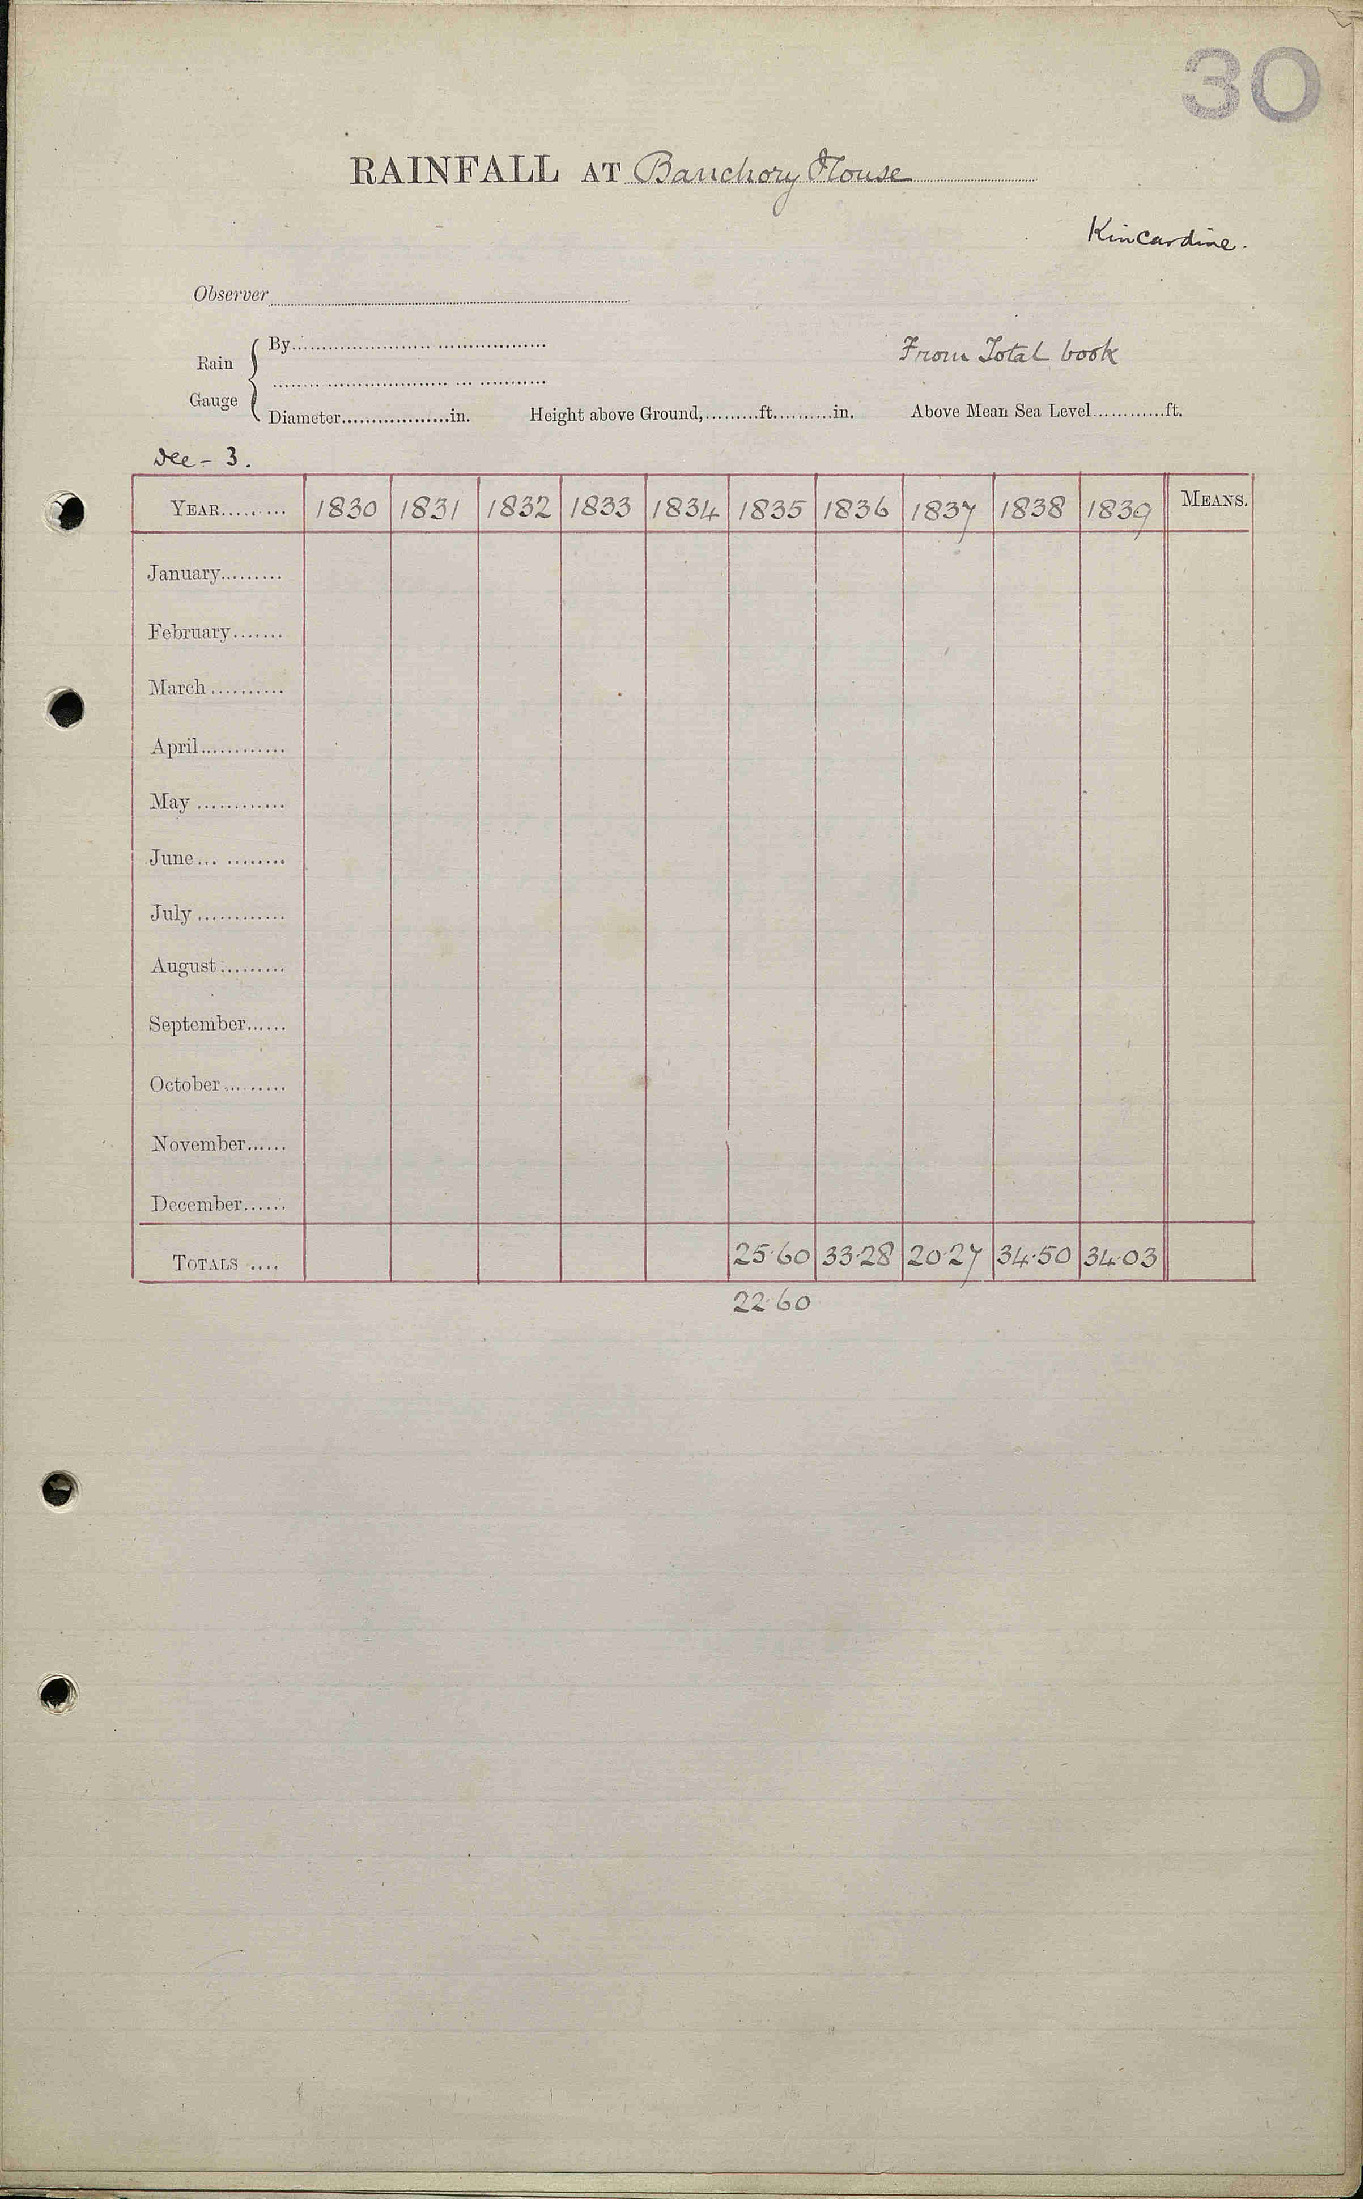 30
RAINFALL AT Banchory House
Kincardine.
Observer
Rain Gauge { By
From Total book
Diameter..................in. Height above Ground,.........ft..........in. Above Mean Sea Level............ft.
Dee - 3.
YEAR......... 1830 1831 1832 1833 1834 1835 1836 1837 1838 1839 MEANS.
January.........
February.......
March..........
April............
May ............
June... ........
July ............
August .........
September......
October.........
November......
December......
TOTALS .... 25·60 33·28 20·27 34·50 34·03
22·60